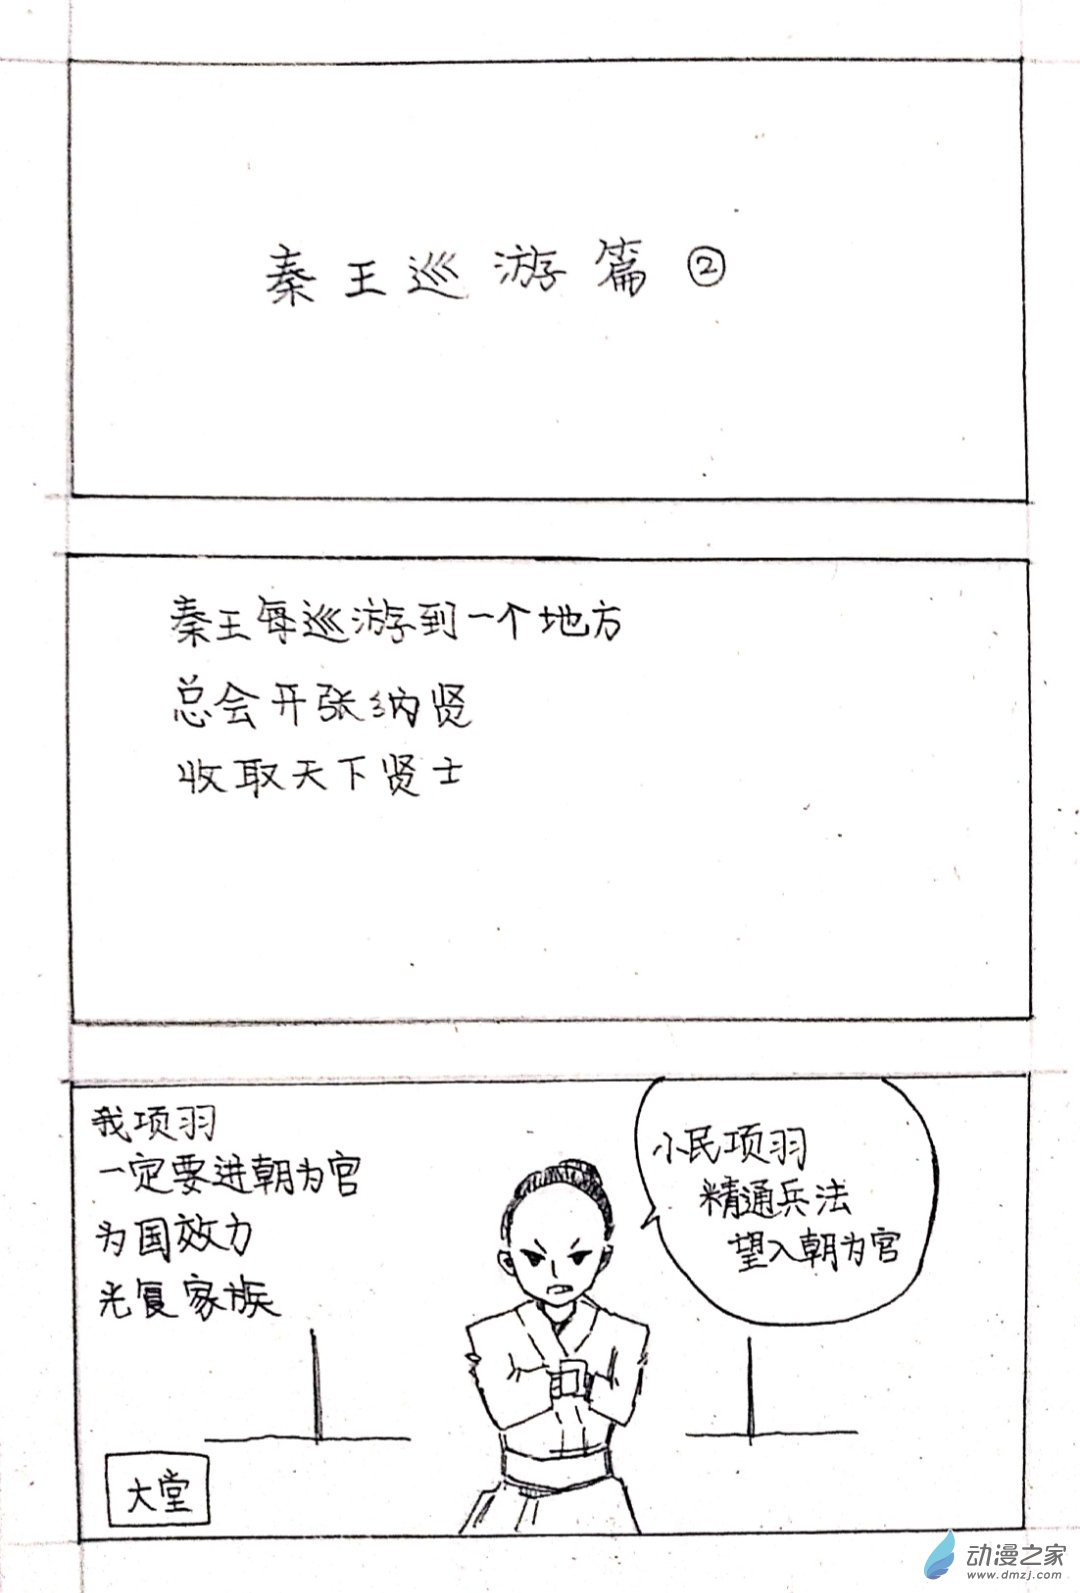 秦王巡游篇②
秦王每巡游到一个地方
总会开张纳贤
收取天下贤士
我项羽
一定要进朝为官
为国效力
光复家族
小民项羽
精通兵法
望入朝为官
大堂
动漫之家
www.dmzj.com